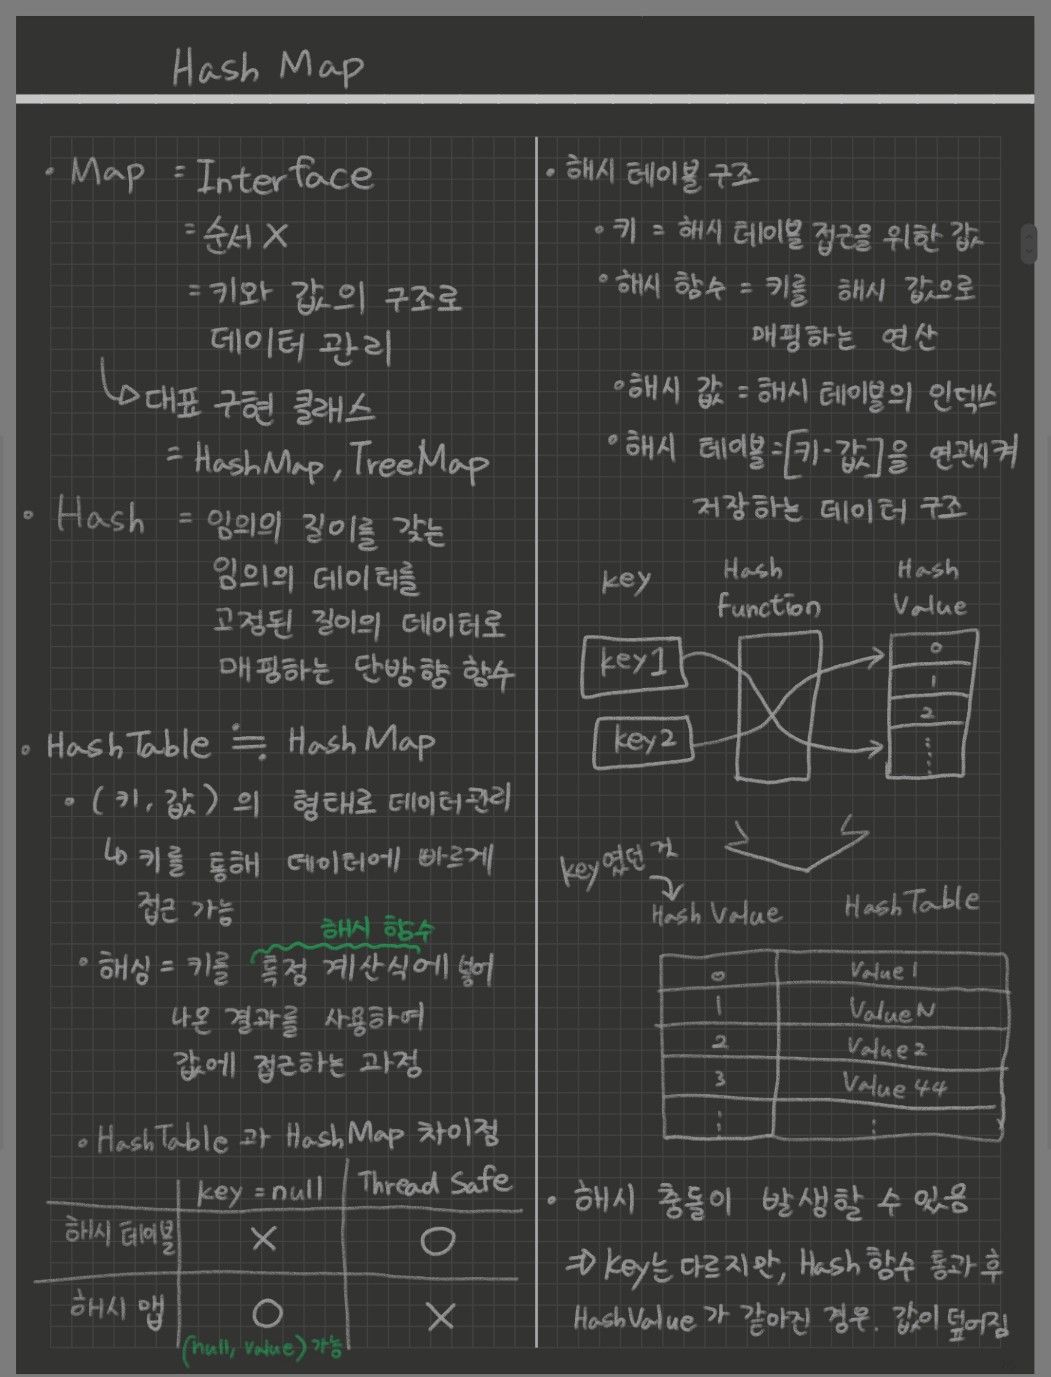 Hash Map
• Map = Interface
= 순서 X
= 키와 값의 구조로
데이터 관리
↳ 대표 구현 클래스
= HashMap, TreeMap
• Hash = 임의의 길이를 갖는
임의의 데이터를
고정된 길이의 데이터로
매핑하는 단방향 함수
• HashTable ≒ HashMap
• (키, 값)의 형태로 데이터관리
↳ 키를 통해 데이터에 빠르게
접근 가능
해시 함수
• 해싱 = 키를 특정 계산식에 넣어
나온 결과를 사용하여
값에 접근하는 과정
• HashTable 과 HashMap 차이점
key = null Thread Safe
해시 테이블 X O
해시 맵 O X
(null, value) 가능
• 해시 테이블 구조
• 키 = 해시 테이블 접근을 위한 값
• 해시 함수 = 키를 해시 값으로
매핑하는 연산
• 해시 값 = 해시 테이블의 인덱스
• 해시 테이블 = [키-값]을 연관시켜
저장하는 데이터 구조
key Hash Hash
function Value
key1 0
1
key2 2
⋮
key였던 것
Hash Value HashTable
0 Value 1
1 Value N
2 Value 2
3 Value 44
⋮ ⋮
• 해시 충돌이 발생할 수 있음
⇒ Key는 다르지만, Hash 함수 통과 후
HashValue 가 같아진 경우. 값이 덮어짐